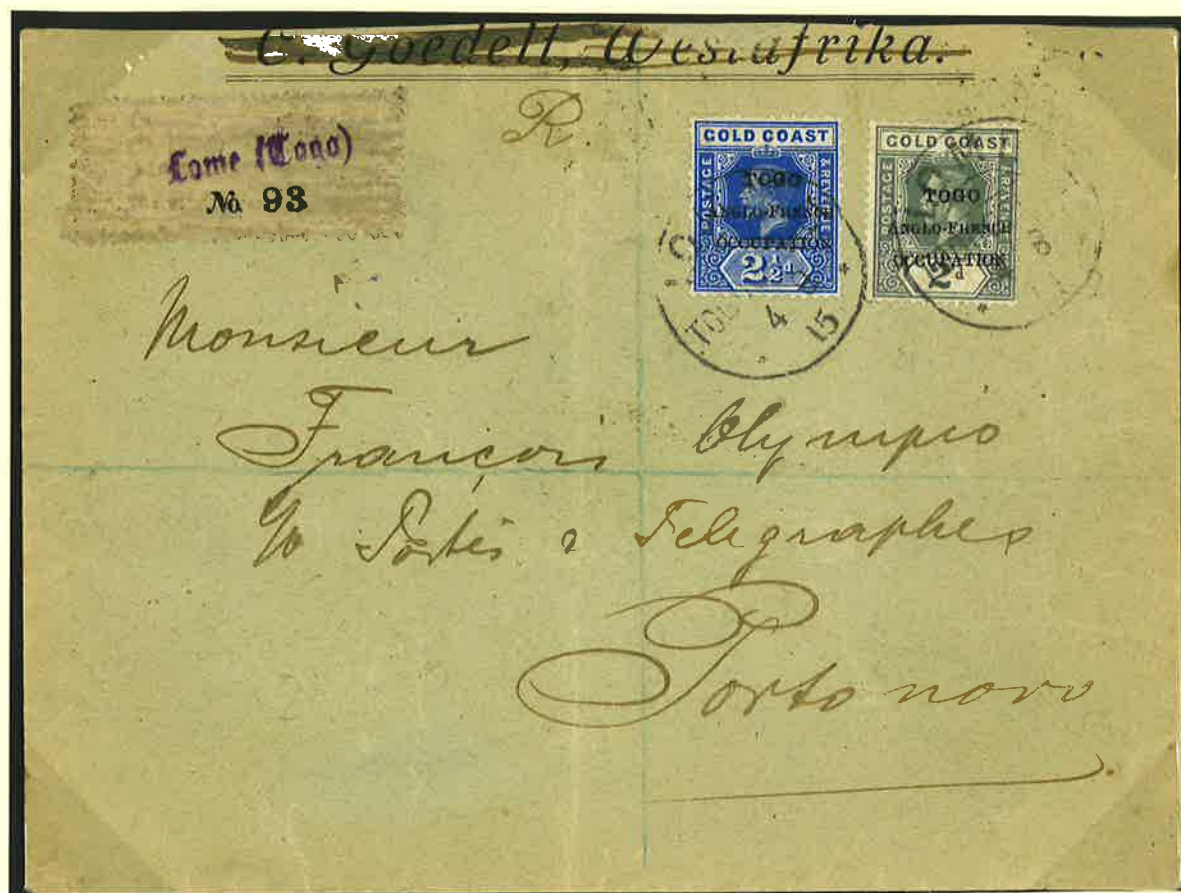 C. Goedelt, Westafrika.
R.
Lome (Togo)
No. 93
GOLD COAST
POSTAGE
& REVENUE
TOGO
ANGLO-FRENCH
OCCUPATION
2½d
GOLD COAST
POSTAGE
& REVENUE
TOGO
ANGLO-FRENCH
OCCUPATION
2d
4
15
Monsieur
François Olympio
c/o Postes & Telegraphes
Porto novo